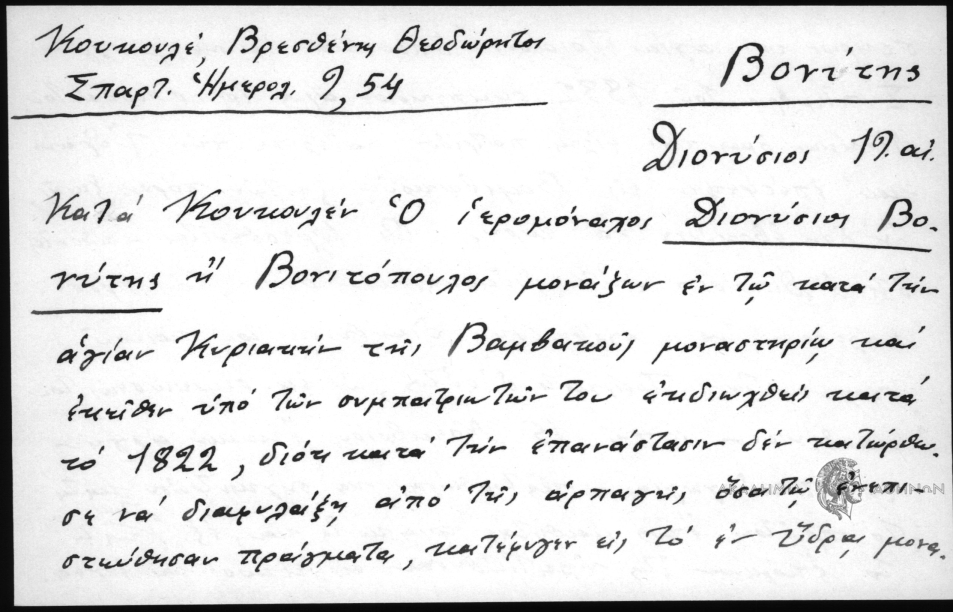 Κουκουλέ, Βρεσθένης Θεοδώρητος
Σπαρτ. Ἡμερολ. 9, 54
Βονίτης
Διονύσιος 19. αἰ.
Κατά Κουκουλέν Ὁ ἱερομόναχος Διονύσιος Βο-
νίτης ἤ Βονιτόπουλος μονάζων ἐν τῷ κατά τήν
ἁγίαν Κυριακήν τῆς Βαμβακοῦς μοναστηρίῳ καί
ἐκεῖθεν ὑπό τῶν συμπατριωτῶν του ἐκδιωχθείς κατά
τό 1822, διότι κατά τήν ἐπανάστασιν δέν κατώρθω-
σε νά διαφυλάξῃ ἀπό τῆς ἁρπαγῆς ὅσα τῷ ἐνεπι-
στεύθησαν πράγματα, κατέφυγεν εἰς τό ἐν Ὕδρᾳ μονα-